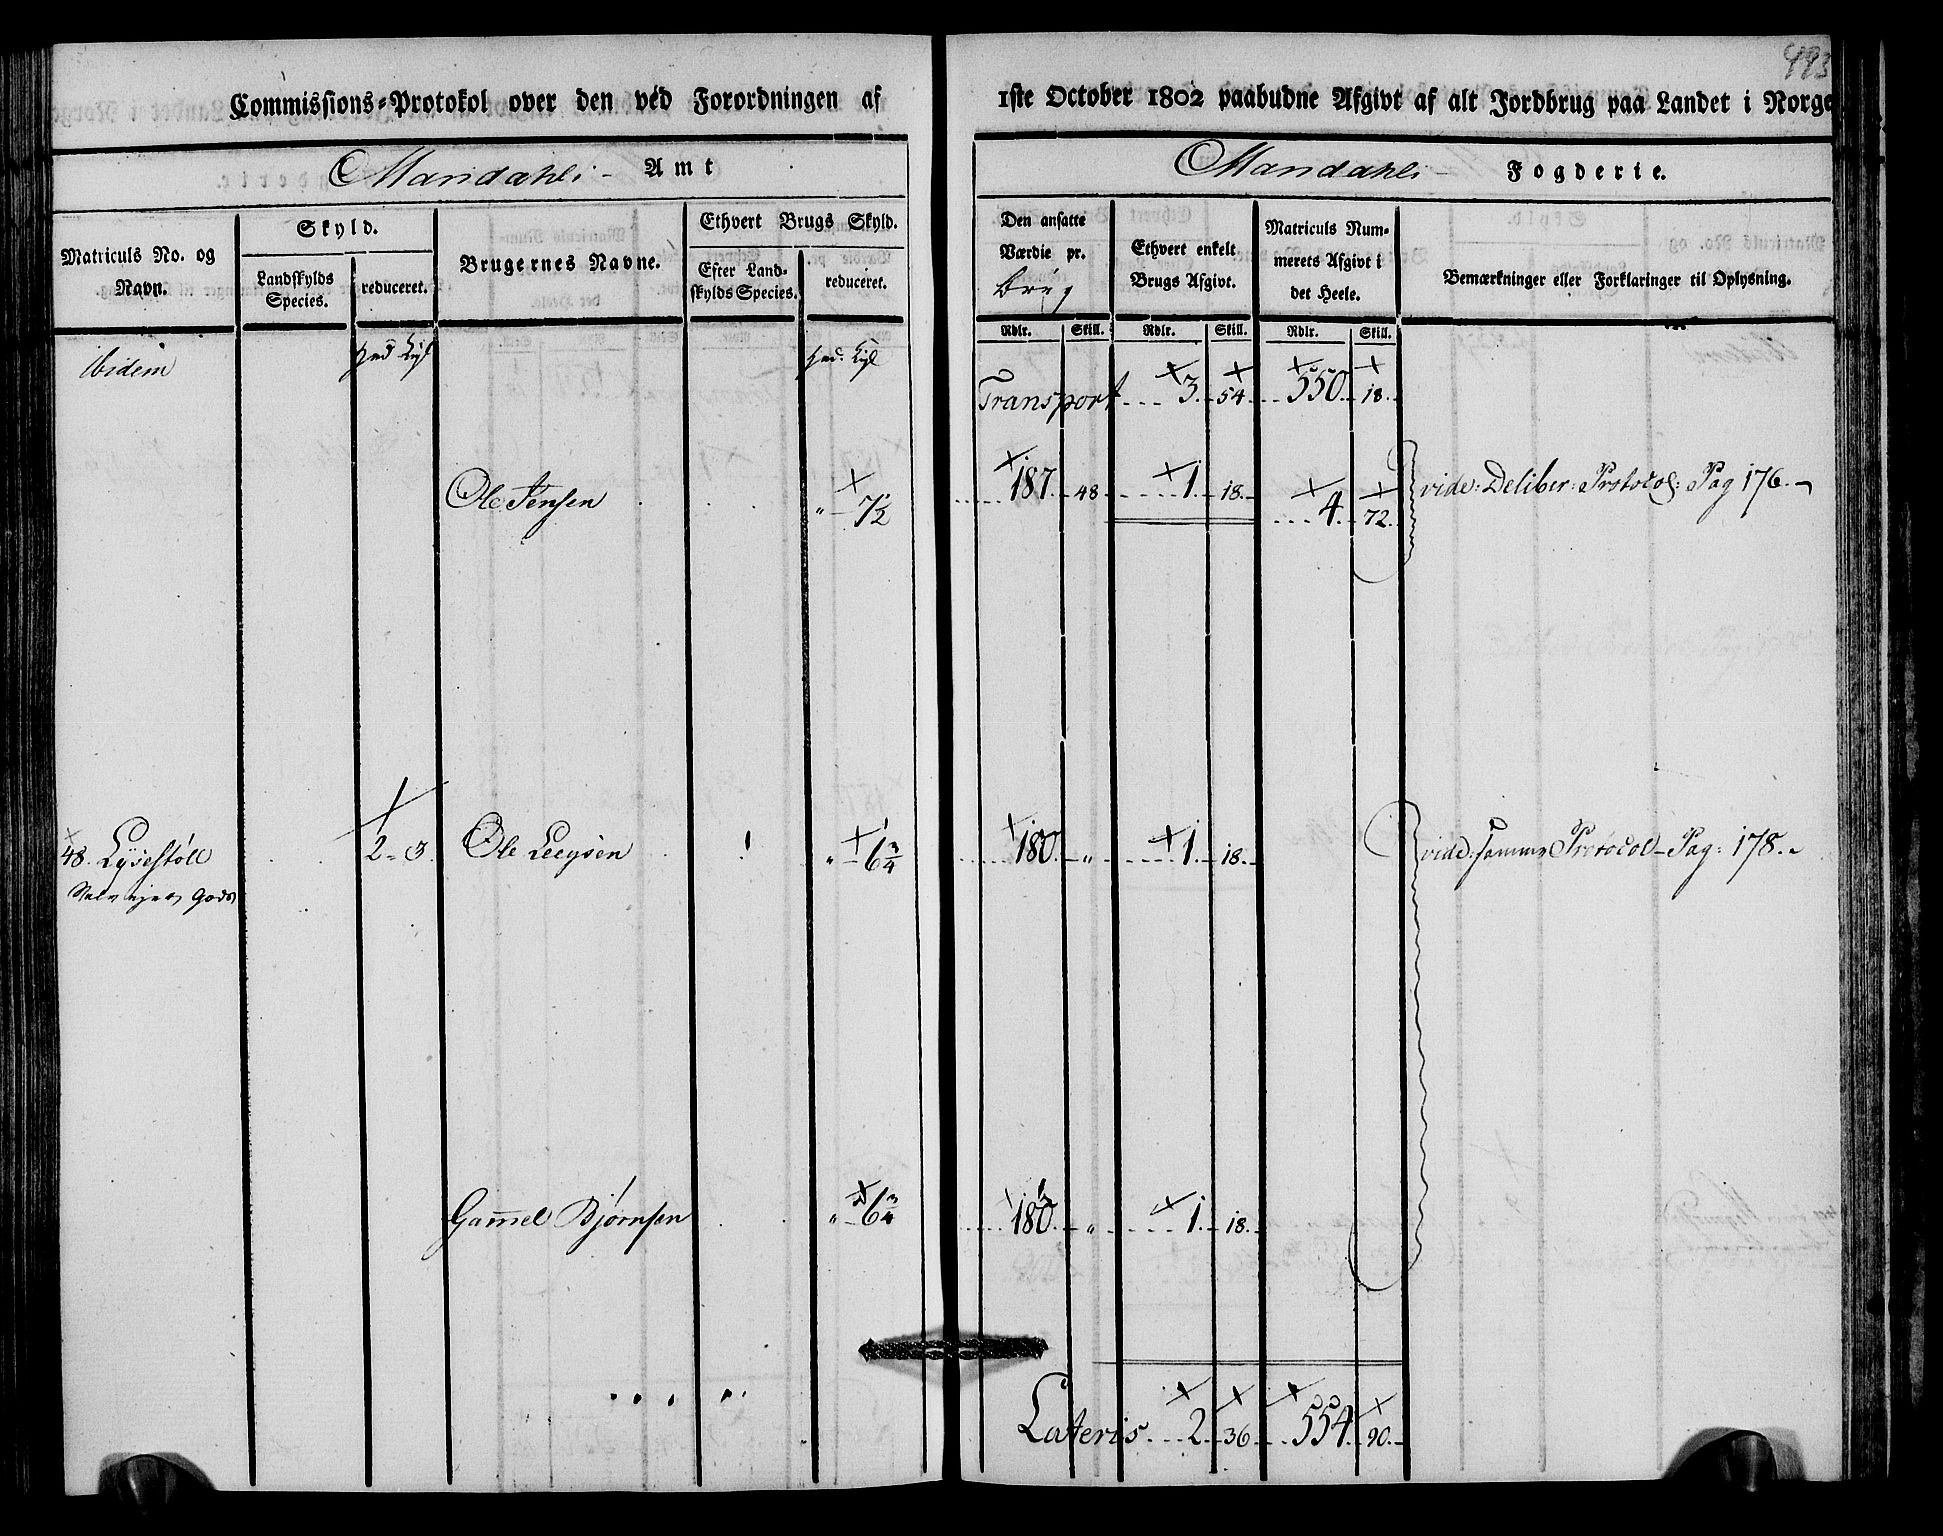 493
Commissions-Protokol over den ved Forordningen af 1ste October 1802 paabudne Afgivt af alt Jordbrug paa Landet i Norge
Mandahls- Amt
Mandahls- Fogderie.
Matriculs No. og Navn.
Skyld.
Landskylds Species.
reduceret.
Brugernes Navne.
Ethvert Brugs Skyld.
Efter Landskylds Species.
reduceret.
Den ansatte Værdie pr. brug
Ethvert enkelt Brugs Afgivt.
Matriculs Nummerets Afgivt i det Heele.
Bemærkninger eller Forklaringer til Oplysning.
Rdlr. Skill. Rdlr. Skill. Rdlr. Skill.
Ibidem
Transport 3. 54 550. 18.
Ole Jensen " 7½ 187. 48 1. 18. 4. 72. vide: Deliber: Protocol: Pag 176.
48. Lysestøll 2 - 3. Ole " 6¾ 180. " 1. 18. vide: samme Protocol - Pag: 178.
Gam̅el Bjørnsen " 6¾ 180. " 1. 18.
Lateris 2. 36 554. 90.